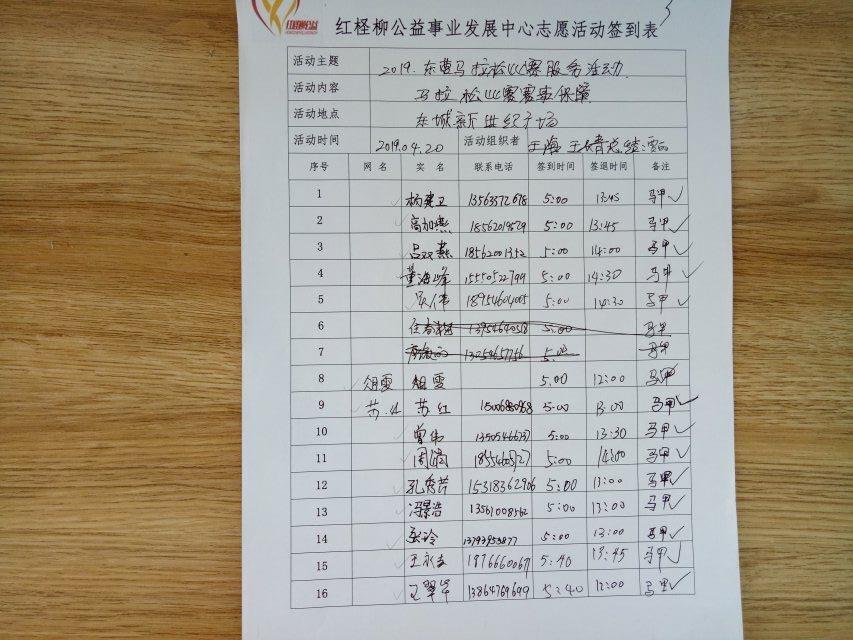 红柽柳公益
红柽柳公益事业发展中心志愿活动签到表
活动主题 2019.东营马拉松比赛服务活动
活动内容 马拉松比赛赛事保障
活动地点 东城新世纪广场
活动时间 2019.04.20 活动组织者 王海
序号 网名 实名 联系电话 签到时间 签退时间 备注
1 杨建卫 13563572678 5:00 13:45 马甲✓
2 高加燕 18562019529 5:00 13:45 马甲✓
3 吕双燕 18562001352 5:00 14:00 马甲✓
4 董海峰 15550522799 5:00 14:30 马甲✓
5 18954604005 5:00 14:30 马甲✓
6 13954640518 5:00 马甲
7 5:00 马甲
8 5:00 12:00 马甲
9 苏红 苏红 15006880968 5:00 13:00 马甲✓
10 曾伟 13505466737 5:00 13:30 马甲✓
11 5:00 14:00 马甲✓
12 孔秀芹 15318362906 5:00 13:00 马甲✓
13 冯景浩 13561008562 5:00 13:00 马甲✓
14 张玲 13793953877 5:00 13:00 马甲✓
15 王永吉 18766600671 5:40 13:45 马甲✓
16 王翠华 13864769699 5:40 12:00 马甲✓